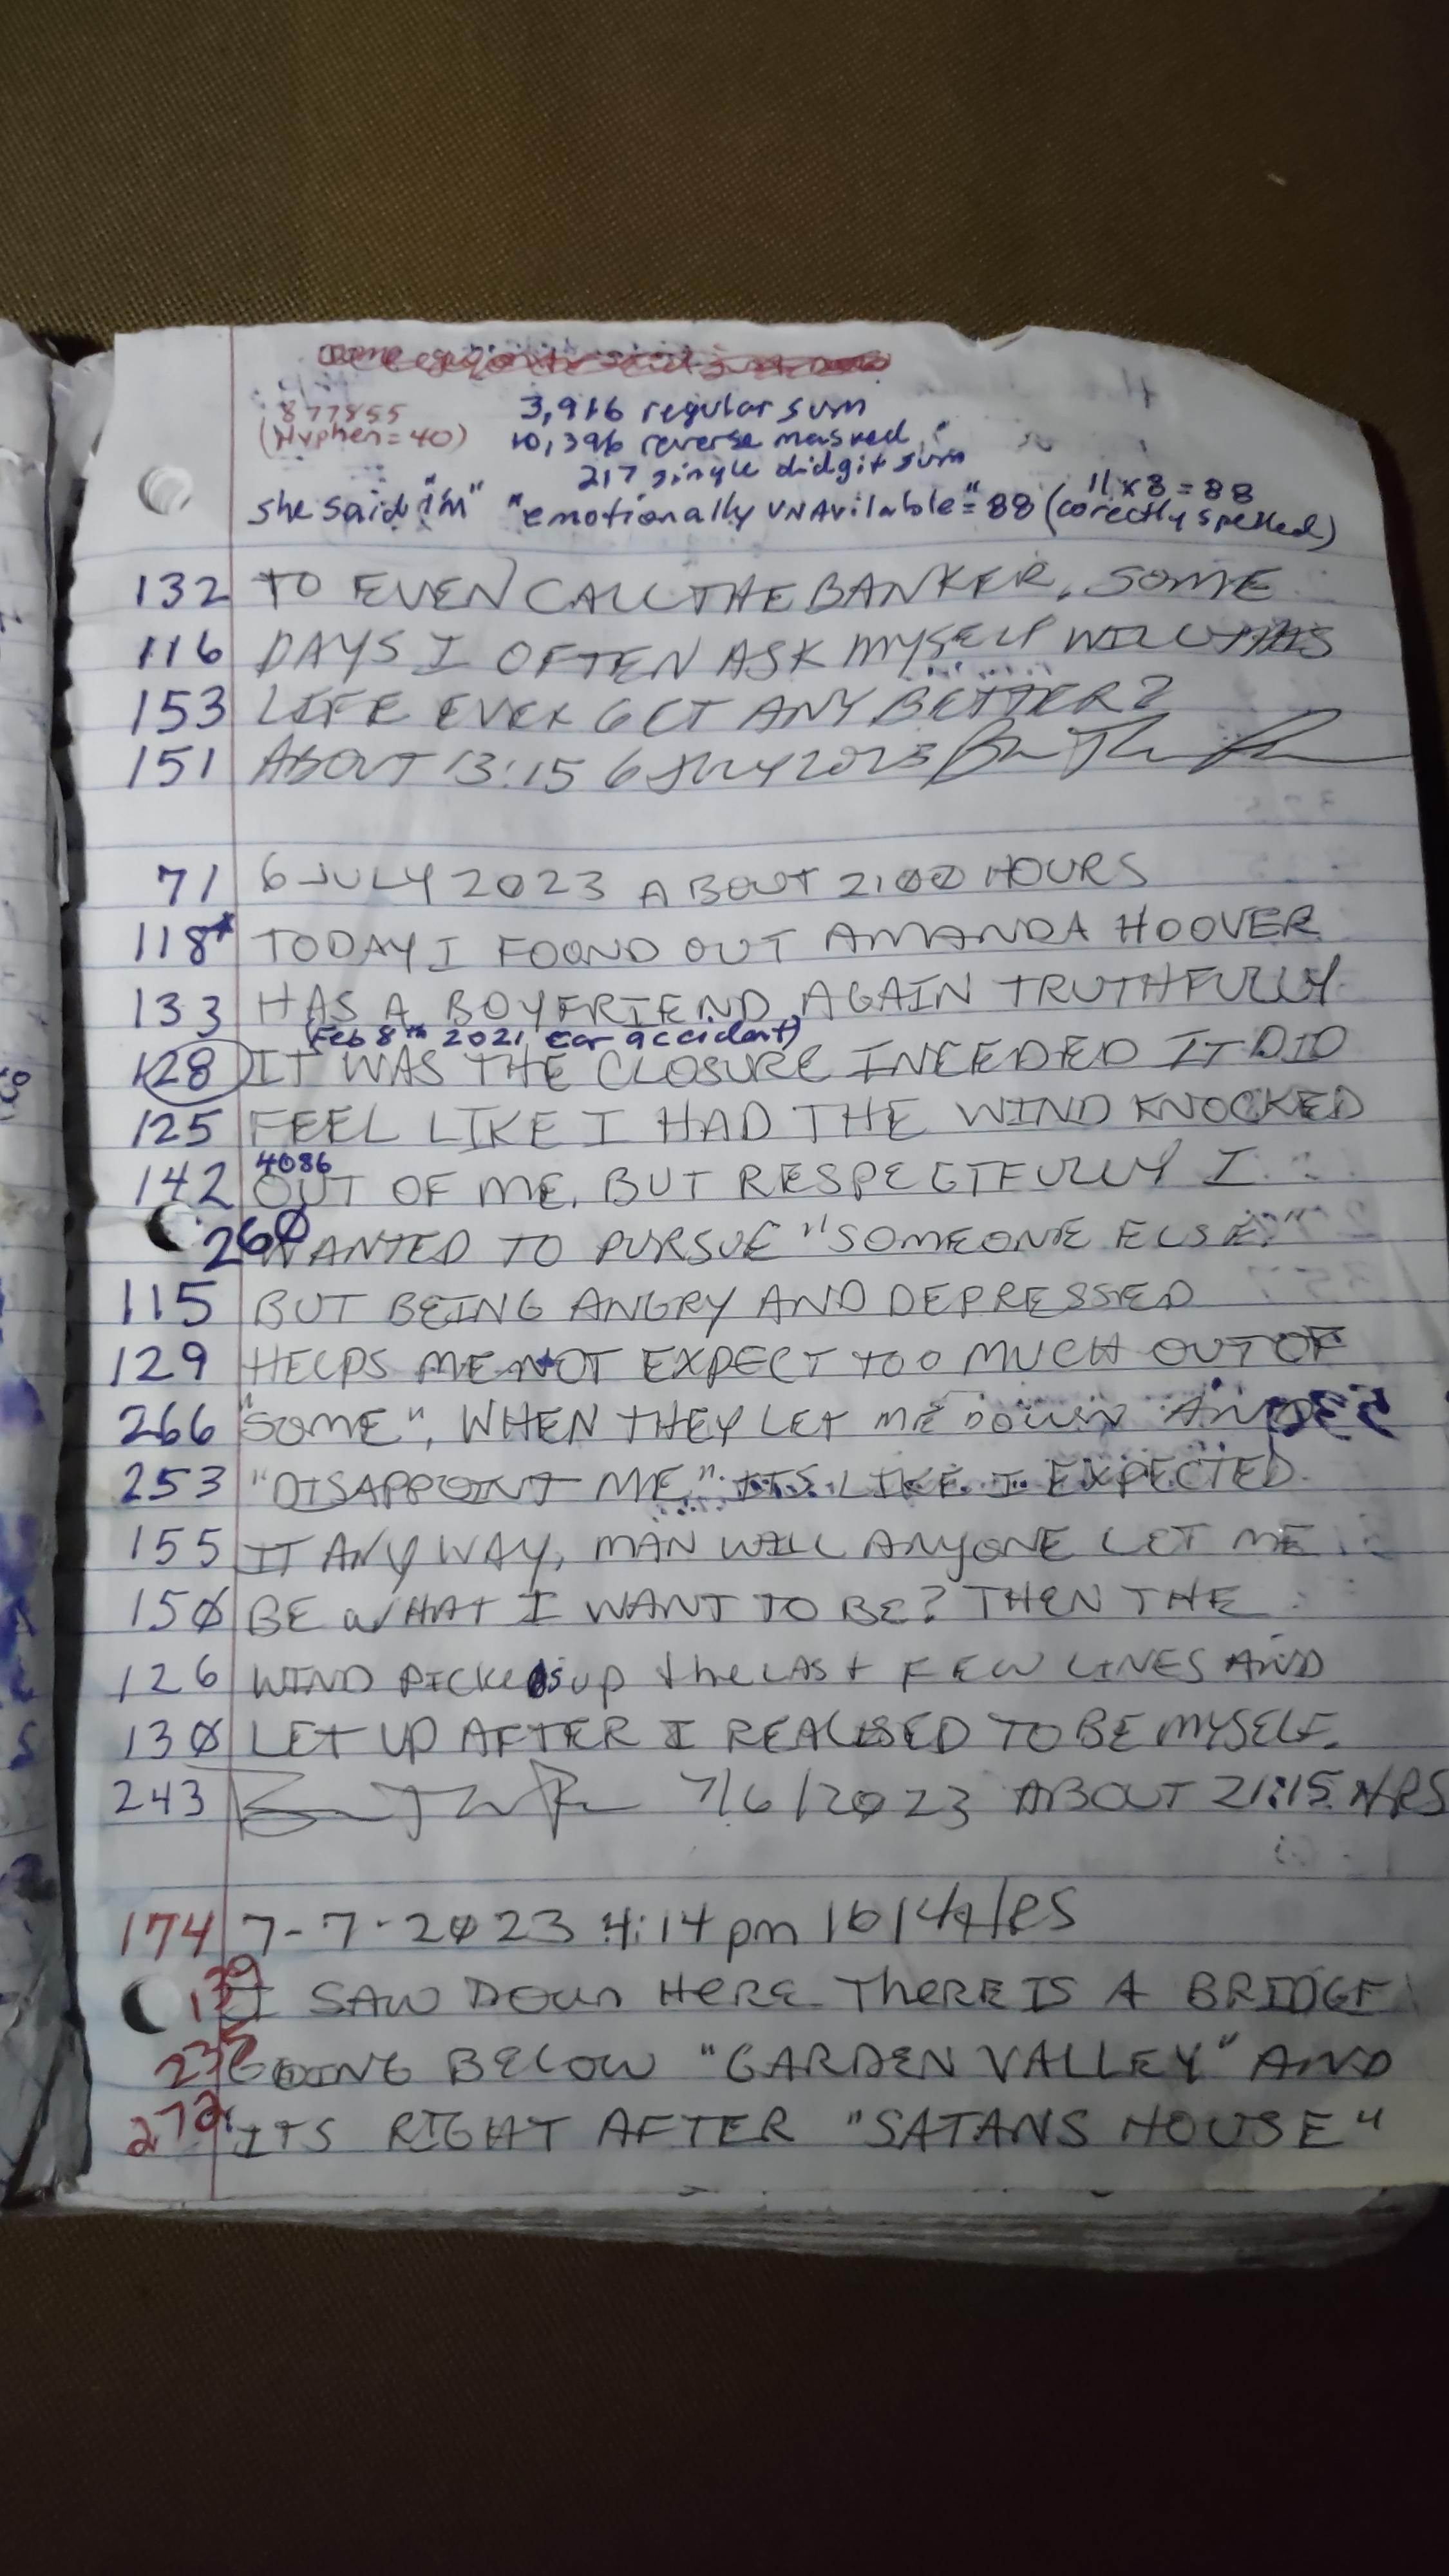 877855
(Hyphen=40)
3,916 regular sum
10,396 reverse masked
217 single didgit sum
11x8=88
she said "i'm" "emotionally UNAvilable"=88 (corectly spelled)
132 TO EVEN CALL THE BANKER. SOME
116 DAYS I OFTEN ASK MYSELF WILL THIS
153 LIFE EVER GET ANY BETTER?
151 ABOUT 13:15 6 JULY 2023
71 6 JULY 2023 ABOUT 2100 HOURS
118* TODAY I FOOND OUT AMANDA HOOVER
133 HAS A BOYFRIEND AGAIN TRUTHFULLY
(Feb 8th 2021 car accident)
128 IT WAS THE CLOSURE I NEEDED IT DID
125 FEEL LIKE I HAD THE WIND KNOCKED
4086
142 OUT OF ME, BUT RESPECTFULLY I
260 WANTED TO PURSUE "SOMEONE ELSE."
115 BUT BEING ANGRY AND DEPRESSED
129 HELPS ME NOT EXPECT TOO MUCH OUT OF
266 "SOME", WHEN THEY LET ME DOWN AND
253 "DISAPPOINT ME" ITS LIKE I EXPECTED
155 IT ANY WAY, MAN WILL ANYONE LET ME
150 BE WHAT I WANT TO BE? THEN THE
126 WIND PICKED up the LAST FEW LINES AND
130 LET UP AFTER I REALISED TO BE MYSELF.
243 7/6/2023 ABOUT 21:15 HRS
174 7-7-2023 4:14 pm 1614 HRS
I SAW DOWN HERE THERE IS A BRIDGE
GOING BELOW "GARDEN VALLEY" AND
272 ITS RIGHT AFTER "SATANS HOUSE"